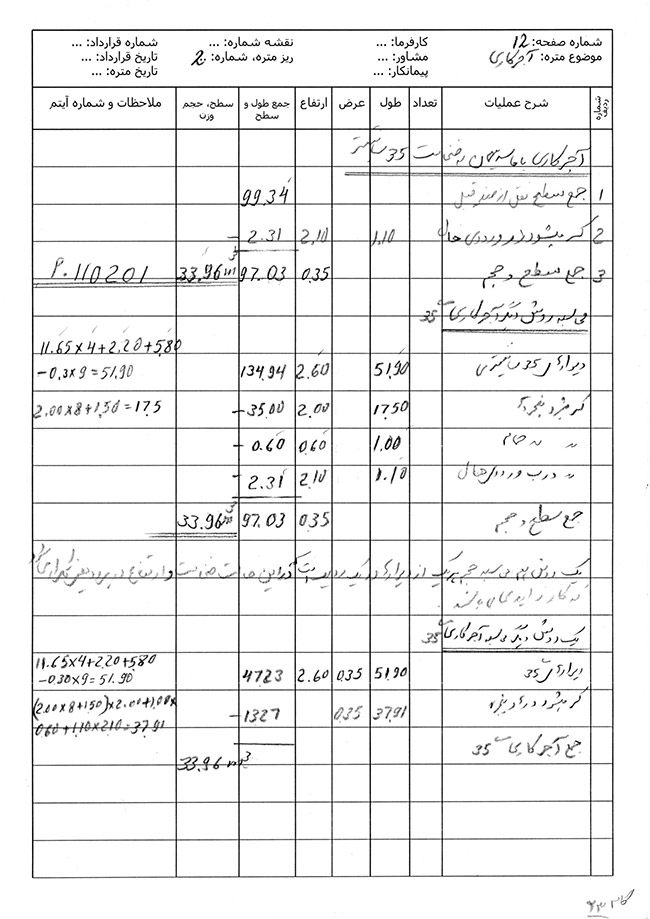 شماره صفحه: 12 کارفرما: ... نقشه شماره: ... شماره قرارداد: ...
موضوع متره: آجرکاری مشاور: ... ریز متره، شماره: 2 تاریخ قرارداد: ...
پیمانکار: ... تاریخ متره: ...
شماره ردیف شرح عملیات تعداد طول عرض ارتفاع جمع طول و سطح سطح، حجم وزن ملاحظات و شماره آیتم
آجرکاری با ماسه سیمان به ضخامت 35 سانتیمتر
1 جمع سطح نقل از صفحه قبل 99.34
2 کسر میشود در ورودی هال 1.10 2.10 - 2.31
3 جمع سطح و حجم 0.35 97.03 33.96 m3 P.110201
محاسبه روش دیگر آجرکاری 35
11.65x4+2.20+5.80
دیوارهای 35 سانتیمتری 51.90 2.60 134.94 -0.3x9=51.90
کسر میشود پنجره 17.50 2.00 - 35.00 2.00x8+1.50=17.5
" " حمام 1.00 0.60 - 0.60
" درب ورودی هال 1.10 2.10 - 2.31
جمع سطح و حجم 0.35 97.03 33.96 m3
یک روش هم محاسبه حجم هر یک از دیوارها در یک ردیف است که در این حالت ضخامت و ارتفاع در
یک روش دیگر محاسبه آجرکاری 35
11.65x4+2.20+5.80
دیوارهای 35 51.90 0.35 2.60 47.23 -0.30x9=51.90
(2.00x8+1.50)x2.00+1.00x
کسر میشود در و پنجره 37.91 0.35 - 13.27 0.60+1.10x2.10=37.91
جمع آجرکاری 35 33.96 m3